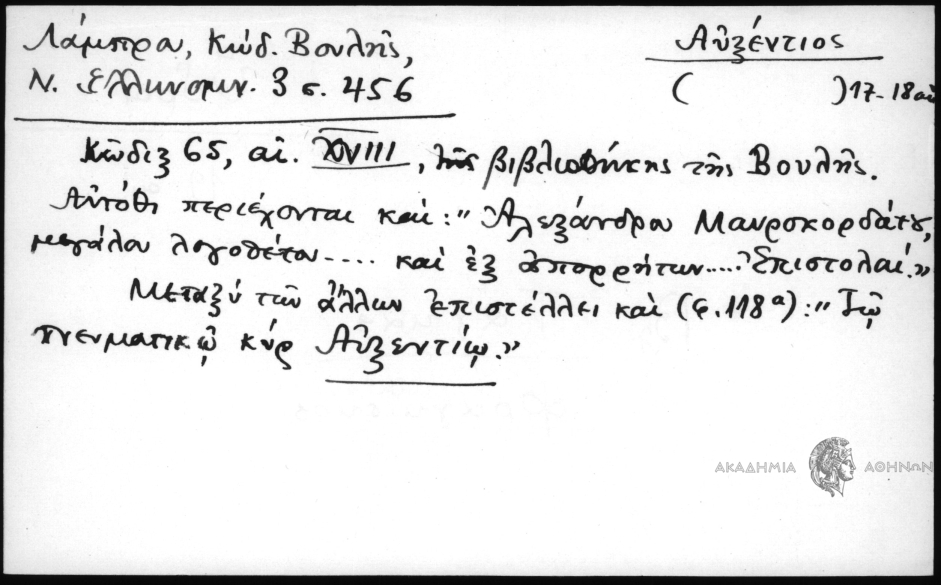 Λάμπρου, Κώδ. Βουλῆς,
Ν. Ἑλληνομν. 3 σ. 456
Αὐξέντιος
( ) 17-18 αἰ
Κῶδιξ 65, αἰ. XVIII, τῆς βιβλιοθήκης τῆς Βουλῆς.
Αὐτόθι περιέχονται καὶ: "Ἀλεξάνδρου Μαυροκορδάτου,
μεγάλου λογοθέτου..... καὶ ἐξ ἀπορρήτων..... Ἐπιστολαί."
Μεταξὺ τῶν ἄλλων ἐπιστέλλει καὶ (φ. 118α): "Τῷ
πνευματικῷ κύρ Αὐξεντίῳ."
ΑΚΑΔΗΜΙΑ ΑΘΗΝΩΝ